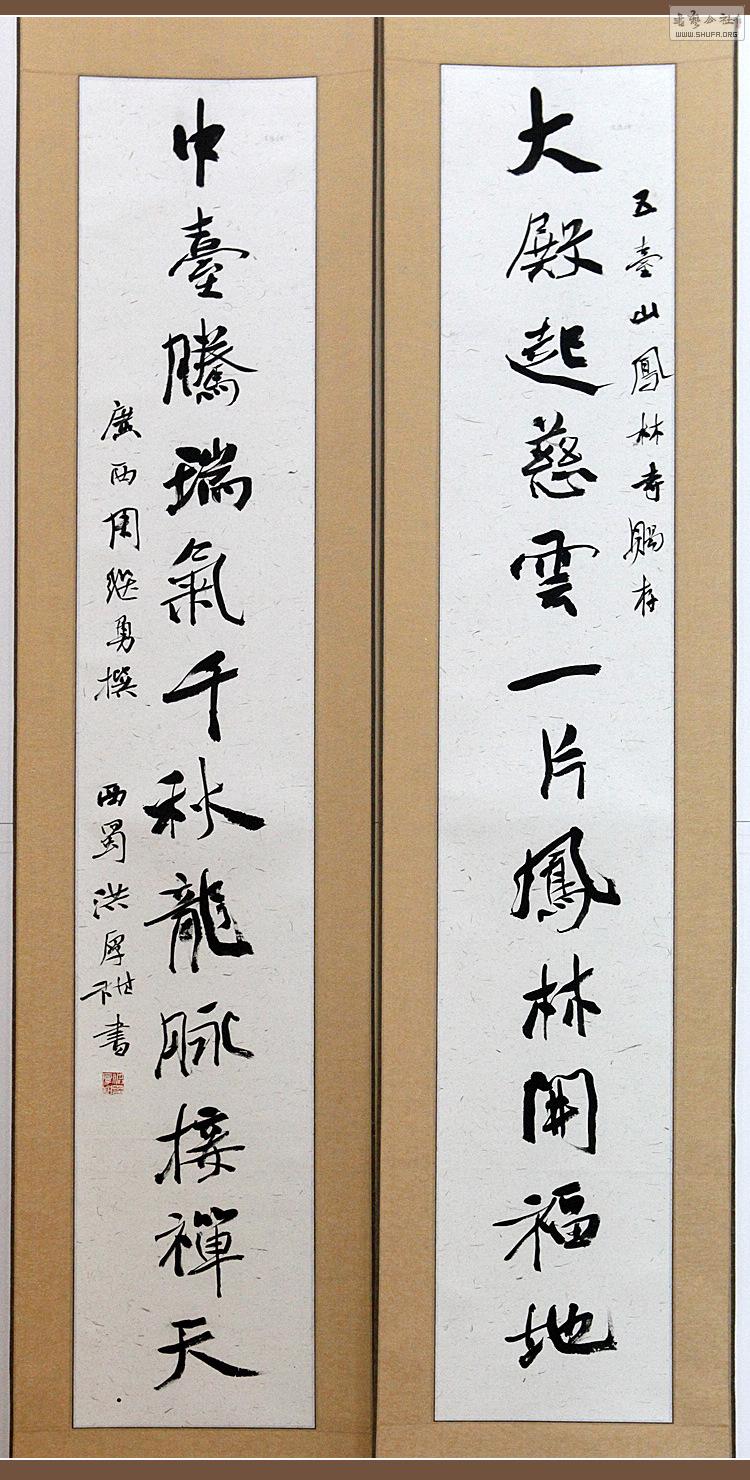 五臺山鳳林寺賜存
大殿起慈雲一片鳳林開福地
中臺騰瑞氣千秋龍脉接禪天
廣西周继勇撰
西蜀洪厚甜书
書艺公社
WWW.SHUFA.ORG